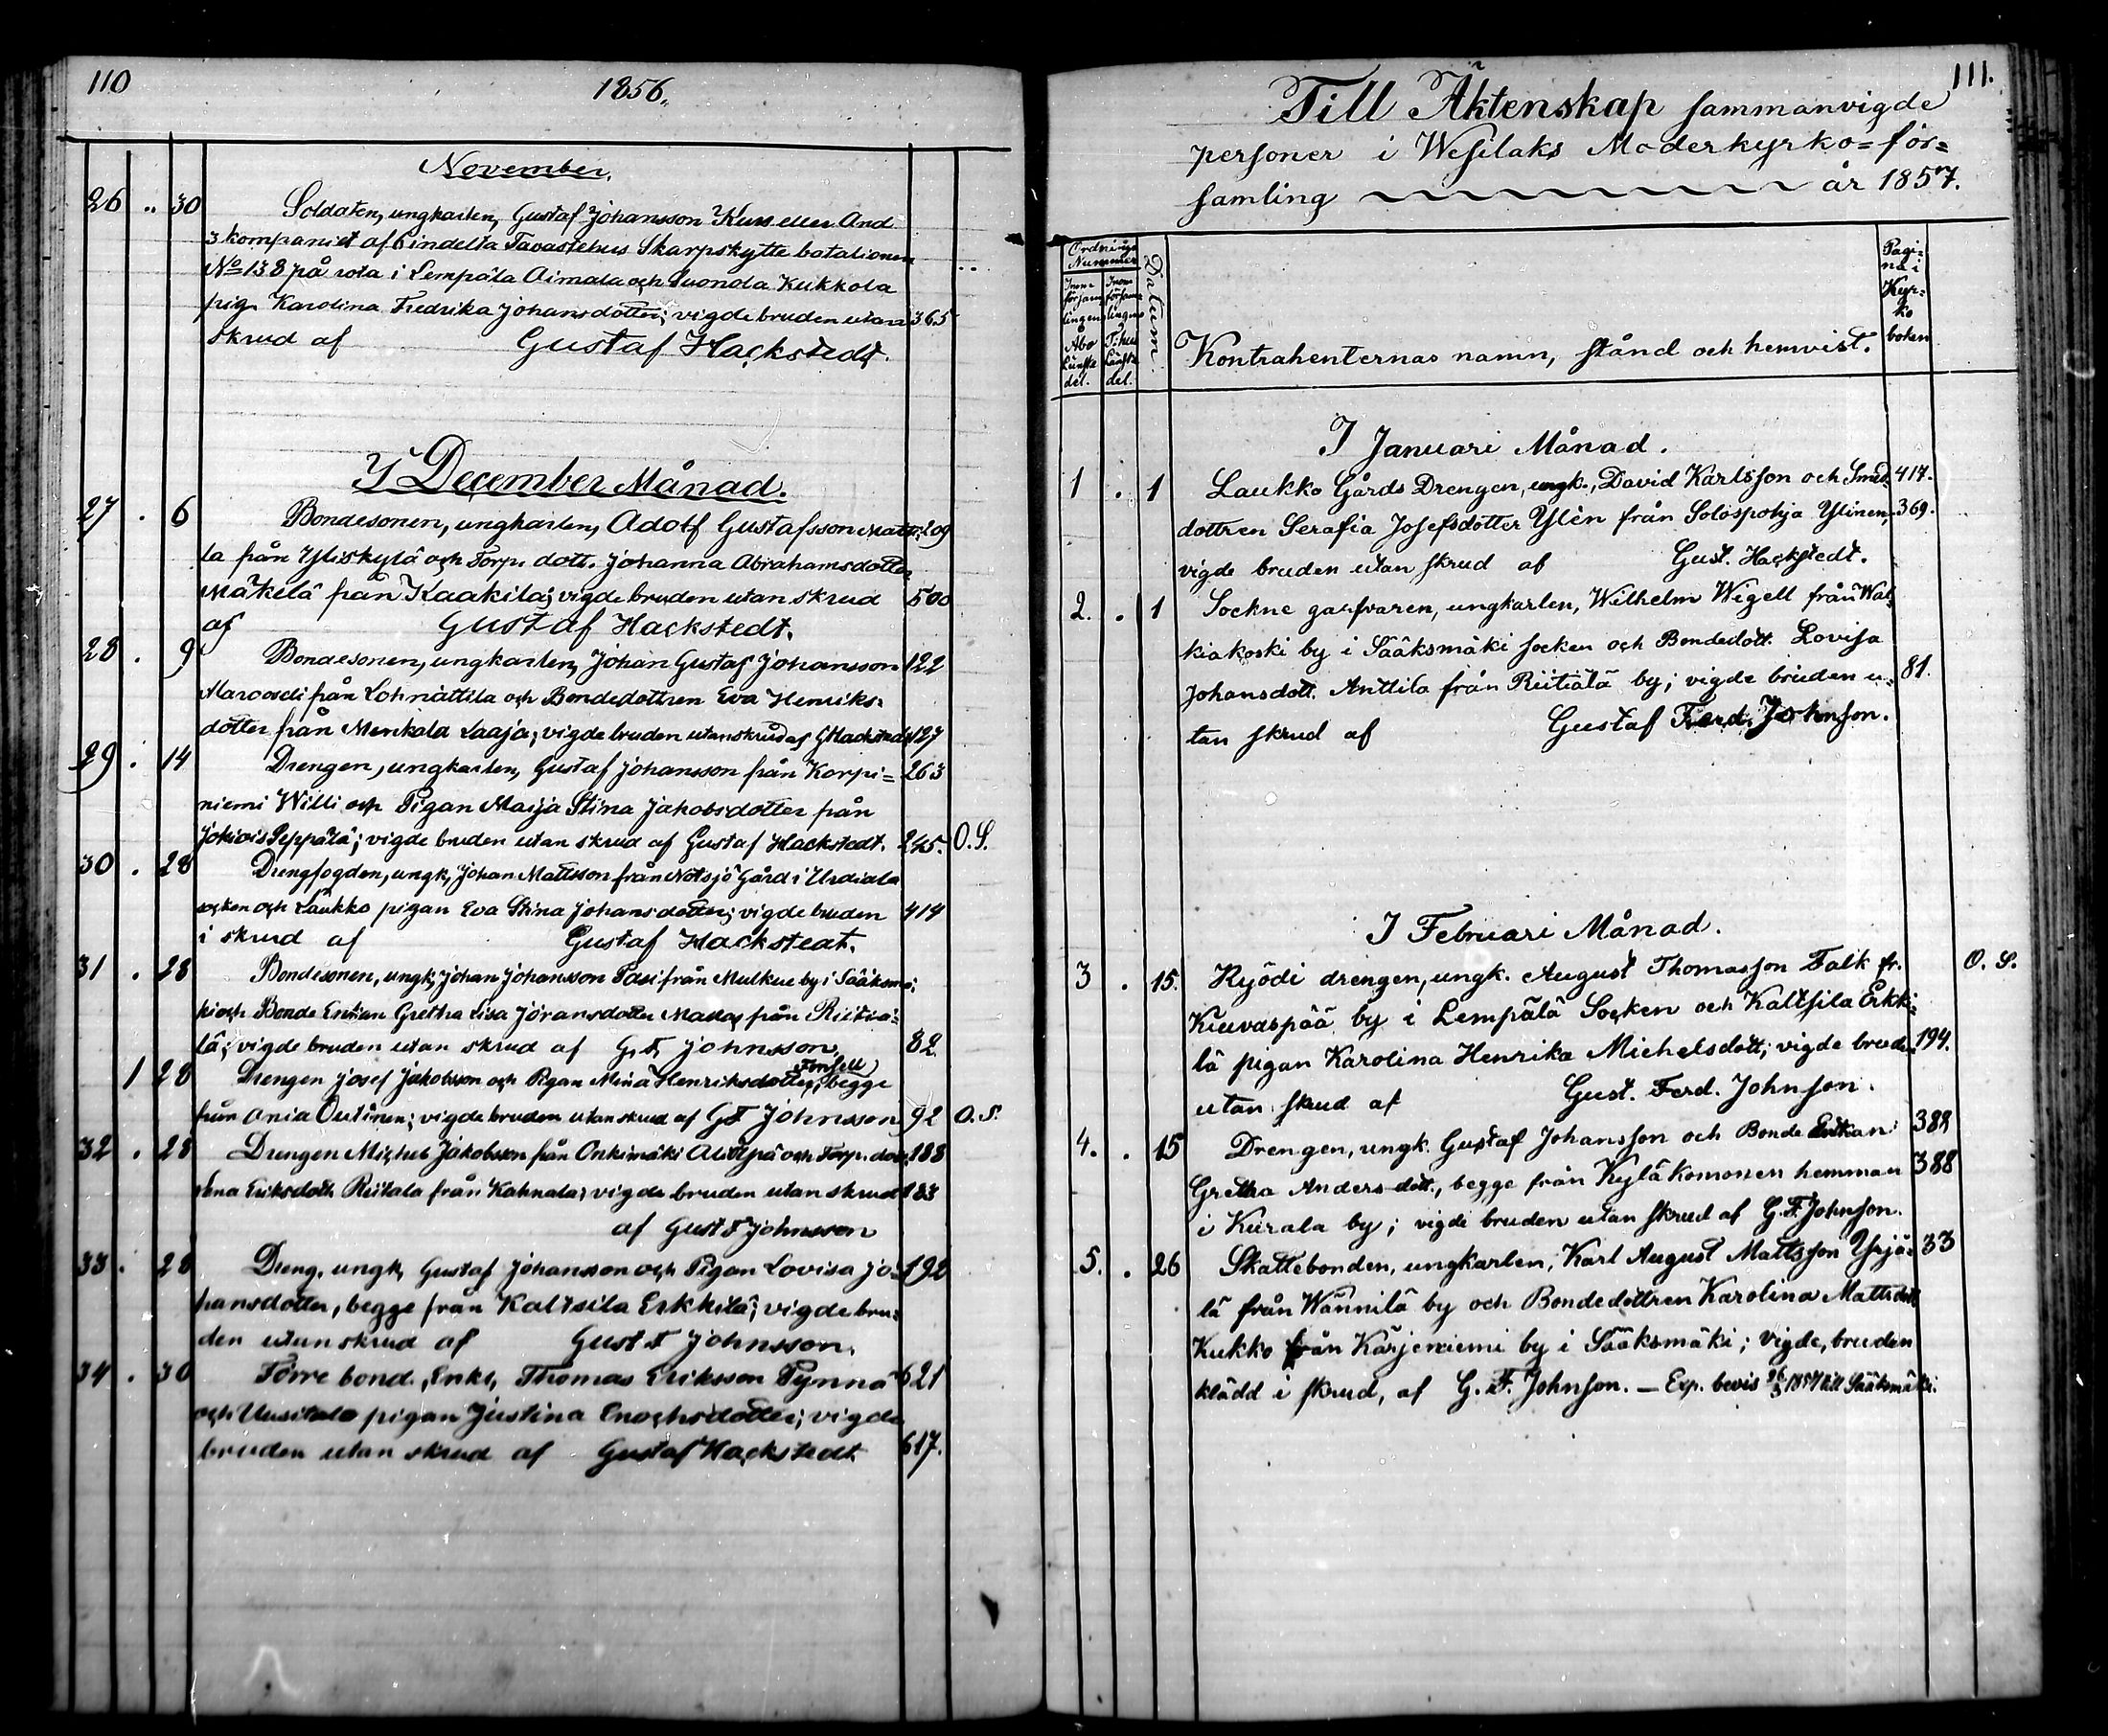 110
1856.
November.
26 .. 30 Soldaten, ungkarlen, Gustaf Johansson Kuss eller And
3 kompaniet af 6 indelta Tavastehus Skarpskytte batalionen
No 138 på rota i Lempäla Aimala och Suonola Kukkola ..
pig. Karolina Fredrika Johansdotter; vigde bruden utan 365
skrud af Gustaf Hackstedt.
I December Månad.
27 . 6 Bondesonen, ungkarlen, Adolf Gustafsson Matti= 209
la från Yliskylä och Torp. dott. Johanna Abrahamsdotter
Mäkelä från Kaakila; vigde bruden utan skrud 500
af Gustaf Hackstedt.
28 . 9 Bondesonen, ungkarlen, Johan Gustaf Johansson 122
från Lohriattila och Bondedottren Eva Henriks=
dotter från Menkala Laaja; vigde bruden utan skrud af G Hackstedt 127
29 . 14 Drengen, ungkarlen, Gustaf Johansson från Korpi= 263
niemi Willi och Pigan Maija Stina Jakobsdotter från
Jokiois Seppälä; vigde bruden utan skrud af Gustaf Hackstedt. 245. O.S.
30 . 28 Drengfogden, ungk, Johan Mattsson från Notsjö Gård i Urdiala
socken och Laukko pigan Eva Stina Johansdotter; vigde bruden 414
i skrud af Gustaf Hackstedt.
31 . 28 Bondesonen, ungk, Johan Johansson Pasi från Mulkue by i Sääksmä=
ki och Bonde Enkan Gretha Lisa Jöransdotter från Riitia=
lä; vigde bruden utan skrud af G.F. Johnsson. 82
Fonsell
1 28 Drengen Josef Jakobsson och Pigan Mina Henriksdotter, begge
från Onia Outinen; vigde bruden utan skrud af GF Johnsson 92 O.S.
32 . 28 Drengen Michel Jakobsson från Onkimäki och Torp. dott. 188
Lena Eriksdott. Riitala från Kahnala; vigde bruden utan skrud 183
af Gust F Johnsson
33 . 28 Dreng. ungk, Gustaf Johansson och Pigan Lovisa Jo= 192
hansdotter, begge från Kaltsila Erkkilä; vigde bru=
den utan skrud af Gust F Johnsson.
34 . 30 Förre bond., Enkl, Thomas Eriksson Pynnä 621
och Uusitalo pigan Justina Enochsdotter; vigde
bruden utan skrud af Gustaf Hackstedt 617.
111.
Till Äktenskap sammanvigde
personer i Wesilaks Moderkyrko=för=
samling år 1857.
Ordnings Nummer
Inom församlingens Åbo Länska del.
Inom församlingens T:hus Länska del.
Datum.
Kontrahenternas namn, stånd och hemvist.
Pagina i Kyrko boken
I Januari Månad.
1 . 1 Laukko Gårds Drengen, ungk., David Karlsson och Smed= 417.
dottren Serafia Josefsdotter Ylén från Solospohja Ylinen; 369.
vigde bruden utan skrud af Gust. Hackstedt.
2. . 1 Sockne garfvaren, ungkarlen, Wilhelm Wigell från Wal=
kiakoski by i Sääksmäki socken och Bondedott. Lovisa
Johansdott. Anttila från Riitiälä by; vigde bruden u= 81.
tan skrud af Gustaf Ferd. Johnson.
I Februari Månad.
3 . 15. Ryödi drengen, ungk. August Thomasson Falk fr. O. S.
Kuuvaspää by i Lempälä Socken och Kaltsila Erkki=
lä pigan Karolina Henrika Michelsdott; vigde bruden 194.
utan skrud af Gust. Ferd. Johnson.
4. . 15 Drengen, ungk. Gustaf Johansson och Bonde Enkan 388
Gretha Anders dott., begge från Kylä Komonen hemman 388
i Kurala by; vigde bruden utan skrud af G.F. Johnson.
5. . 26 Skattebonden, ungkarlen, Karl August Mattsson Yrjä= 33
lä från Wännilä by och Bondedottren Karolina Mattsdott
Kukko från Kärjeniemi by i Sääksmäki; vigde, bruden
klädd i skrud, af G. F. Johnson. — Exp. bevis 26/3 1857 till Sääksmäki.